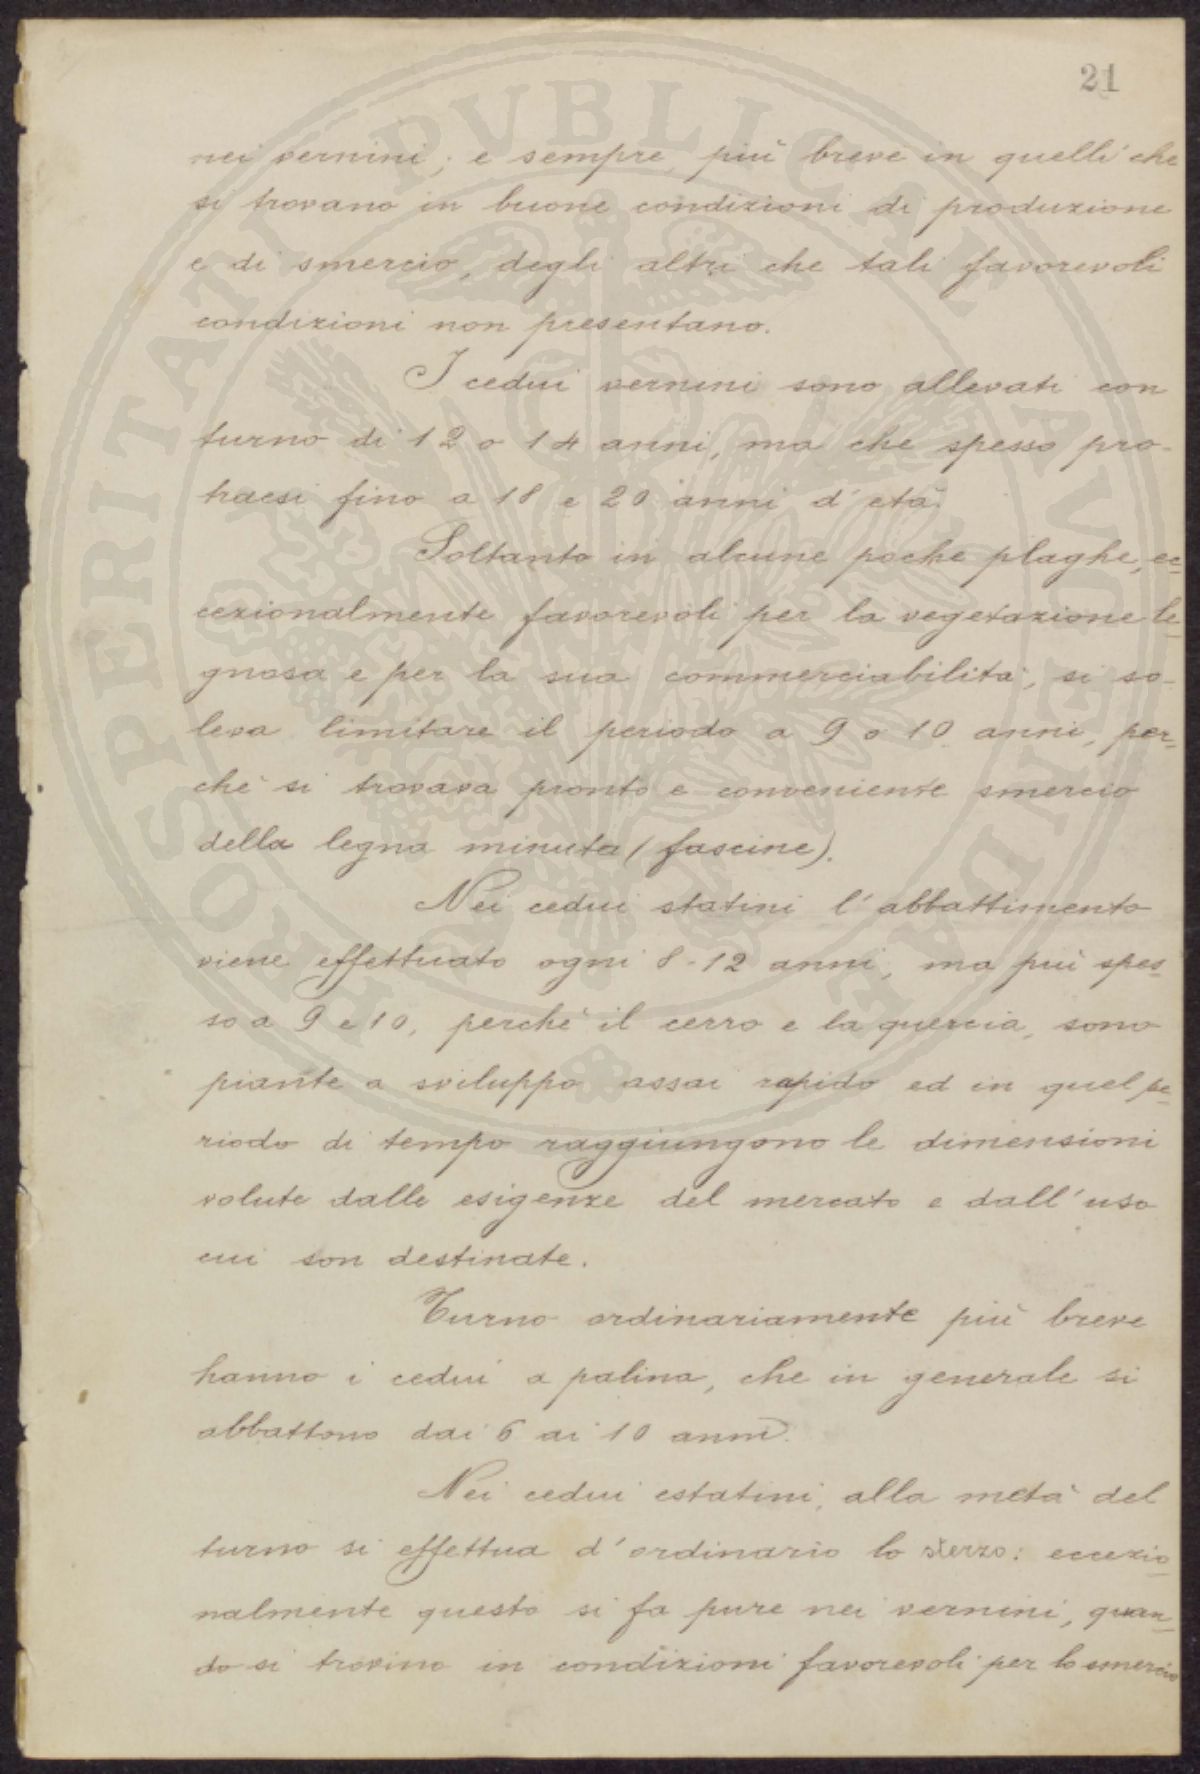 21
nei vernini, e sempre più breve in quelli che
si trovano in buone condizioni di produzione
e di smercio, degli altri che tali favorevoli
condizioni non presentano.
I cedui vernini sono allevati con
turno di 12 o 14 anni, ma che spesso pro-
traesi fino a 18 e 20 anni d'età.
Soltanto in alcune poche plaghe, ec-
cezionalmente favorevoli per la vegetazione le-
gnosa e per la sua commerciabilità, si so-
leva limitare il periodo a 9 o 10 anni, per-
chè si trovava pronto e conveniente smercio
della legna minuta (fascine).
Nei cedui statini l'abbattimento
viene effettuato ogni 8-12 anni, ma più spes-
so a 9 e 10, perchè il cerro e la quercia, sono
piante a sviluppo assai rapido ed in quel pe-
riodo di tempo raggiungono le dimensioni
volute dalle esigenze del mercato e dall'uso
cui son destinate.
Turno ordinariamente più breve
hanno i cedui a palina, che in generale si
abbattono dai 6 ai 10 anni.
Nei cedui estatini, alla metà del
turno si effettua d'ordinario lo sterzo: eccezio-
nalmente questo si fa pure nei vernini, quan-
do si trovino in condizioni favorevoli per lo smercio
PROSPERITATI PVBLICAE AVGENDAE